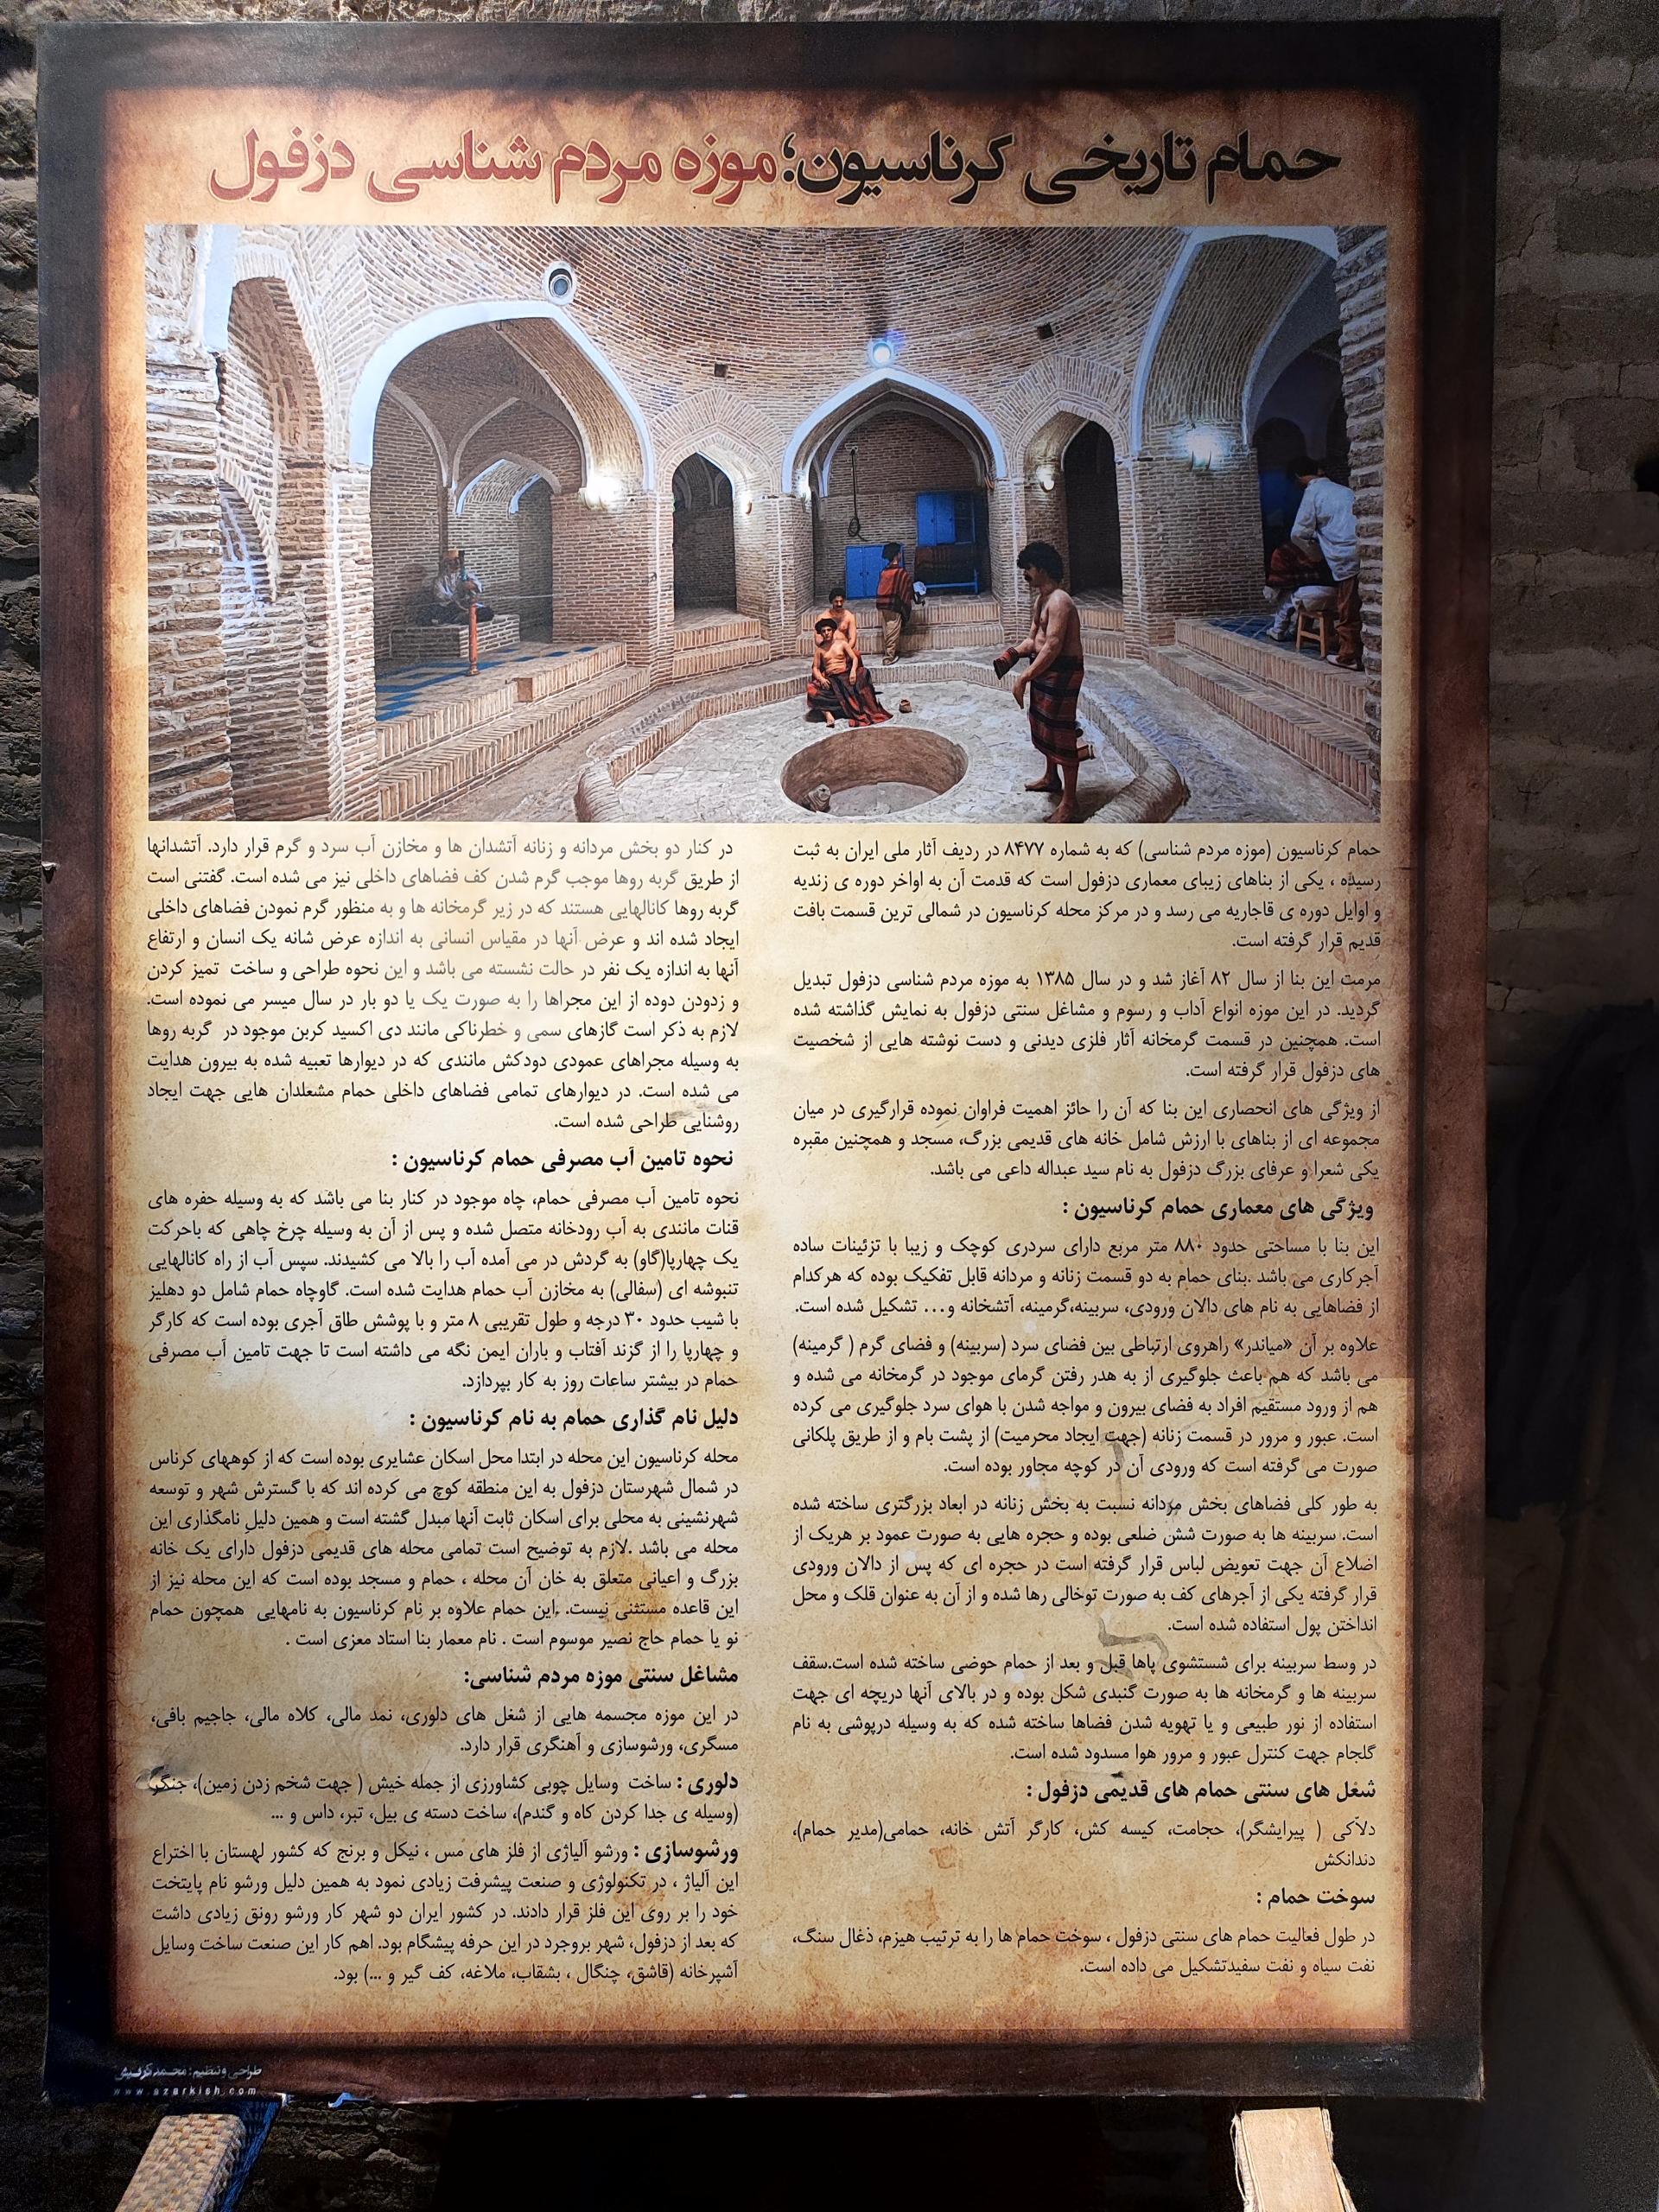 حمام تاریخی کرناسیون؛موزه مردم شناسی دزفول
حمام کرناسیون (موزه مردم شناسی) که به شماره ۸۴۷۷ در ردیف آثار ملی ایران به ثبت
رسیده ، یکی از بناهای زیبای معماری دزفول است که قدمت آن به اواخر دوره ی زندیه
و اوایل دوره ی قاجاریه می رسد و در مرکز محله کرناسیون در شمالی ترین قسمت بافت
قدیم قرار گرفته است.
مرمت این بنا از سال ۸۲ آغاز شد و در سال ۱۳۸۵ به موزه مردم شناسی دزفول تبدیل
گردید. در این موزه انواع آداب و رسوم و مشاغل سنتی دزفول به نمایش گذاشته شده
است. همچنین در قسمت گرمخانه آثار فلزی دیدنی و دست نوشته هایی از شخصیت
های دزفول قرار گرفته است.
از ویژگی های انحصاری این بنا که آن را حائز اهمیت فراوان نموده قرارگیری در میان
مجموعه ای از بناهای با ارزش شامل خانه های قدیمی بزرگ، مسجد و همچنین مقبره
یکی شعرا و عرفای بزرگ دزفول به نام سید عبداله داعی می باشد.
ویژگی های معماری حمام کرناسیون :
این بنا با مساحتی حدود ۸۸۰ متر مربع دارای سردری کوچک و زیبا با تزئینات ساده
آجرکاری می باشد .بنای حمام به دو قسمت زنانه و مردانه قابل تفکیک بوده که هرکدام
از فضاهایی به نام های دالان ورودی، سربینه،گرمینه، آتشخانه و... تشکیل شده است.
علاوه بر آن «میاندر» راهروی ارتباطی بین فضای سرد (سربینه) و فضای گرم ( گرمینه)
می باشد که هم باعث جلوگیری از به هدر رفتن گرمای موجود در گرمخانه می شده و
هم از ورود مستقیم افراد به فضای بیرون و مواجه شدن با هوای سرد جلوگیری می کرده
است. عبور و مرور در قسمت زنانه (جهت ایجاد محرمیت) از پشت بام و از طریق پلکانی
صورت می گرفته است که ورودی آن در کوچه مجاور بوده است.
به طور کلی فضاهای بخش مردانه نسبت به بخش زنانه در ابعاد بزرگتری ساخته شده
است. سربینه ها به صورت شش ضلعی بوده و حجره هایی به صورت عمود بر هریک از
اضلاع آن جهت تعویض لباس قرار گرفته است در حجره ای که پس از دالان ورودی
قرار گرفته یکی از آجرهای کف به صورت توخالی رها شده و از آن به عنوان قلک و محل
انداختن پول استفاده شده است.
در وسط سربینه برای شستشوی پاها قبل و بعد از حمام حوضی ساخته شده است.سقف
سربینه ها و گرمخانه ها به صورت گنبدی شکل بوده و در بالای آنها دریچه ای جهت
استفاده از نور طبیعی و یا تهویه شدن فضاها ساخته شده که به وسیله درپوشی به نام
گلجام جهت کنترل عبور و مرور هوا مسدود شده است.
شغل های سنتی حمام های قدیمی دزفول :
دلاکی ( پیرایشگر)، حجامت، کیسه کش، کارگر آتش خانه، حمامی(مدیر حمام)،
دندانکش
سوخت حمام :
در طول فعالیت حمام های سنتی دزفول ، سوخت حمام ها را به ترتیب هیزم، ذغال سنگ،
نفت سیاه و نفت سفیدتشکیل می داده است.
در کنار دو بخش مردانه و زنانه آتشدان ها و مخازن آب سرد و گرم قرار دارد. آتشدانها
از طریق گربه روها موجب گرم شدن کف فضاهای داخلی نیز می شده است. گفتنی است
گربه روها کانالهایی هستند که در زیر گرمخانه ها و به منظور گرم نمودن فضاهای داخلی
ایجاد شده اند و عرض آنها در مقیاس انسانی به اندازه عرض شانه یک انسان و ارتفاع
آنها به اندازه یک نفر در حالت نشسته می باشد و این نحوه طراحی و ساخت تمیز کردن
و زدودن دوده از این مجراها را به صورت یک یا دو بار در سال میسر می نموده است.
لازم به ذکر است گازهای سمی و خطرناکی مانند دی اکسید کربن موجود در گربه روها
به وسیله مجراهای عمودی دودکش مانندی که در دیوارها تعبیه شده به بیرون هدایت
می شده است. در دیوارهای تمامی فضاهای داخلی حمام مشعلدان هایی جهت ایجاد
روشنایی طراحی شده است.
نحوه تامین آب مصرفی حمام کرناسیون :
نحوه تامین آب مصرفی حمام، چاه موجود در کنار بنا می باشد که به وسیله حفره های
قنات مانندی به آب رودخانه متصل شده و پس از آن به وسیله چرخ چاهی که باحرکت
یک چهارپا(گاو) به گردش در می آمده آب را بالا می کشیدند. سپس آب از راه کانالهایی
تنبوشه ای (سفالی) به مخازن آب حمام هدایت شده است. گاوچاه حمام شامل دو دهلیز
با شیب حدود ۳۰ درجه و طول تقریبی ۸ متر و با پوشش طاق آجری بوده است که کارگر
و چهارپا را از گزند آفتاب و باران ایمن نگه می داشته است تا جهت تامین آب مصرفی
حمام در بیشتر ساعات روز به کار بپردازد.
دلیل نام گذاری حمام به نام کرناسیون :
محله کرناسیون این محله در ابتدا محل اسکان عشایری بوده است که از کوههای کرناس
در شمال شهرستان دزفول به این منطقه کوچ می کرده اند که با گسترش شهر و توسعه
شهرنشینی به محلی برای اسکان ثابت آنها مبدل گشته است و همین دلیل نامگذاری این
محله می باشد .لازم به توضیح است تمامی محله های قدیمی دزفول دارای یک خانه
بزرگ و اعیانی متعلق به خان آن محله ، حمام و مسجد بوده است که این محله نیز از
این قاعده مستثنی نیست. .این حمام علاوه بر نام کرناسیون به نامهایی همچون حمام
نو یا حمام حاج نصیر موسوم است . نام معمار بنا استاد معزی است .
مشاغل سنتی موزه مردم شناسی:
در این موزه مجسمه هایی از شغل های دلوری، نمد مالی، کلاه مالی، جاجیم بافی،
مسگری، ورشوسازی و آهنگری قرار دارد.
دلوری : ساخت وسایل چوبی کشاورزی از جمله خیش ( جهت شخم زدن زمین)، جنگر
(وسیله ی جدا کردن کاه و گندم)، ساخت دسته ی بیل، تبر، داس و ...
ورشوسازی : ورشو آلیاژی از فلز های مس ، نیکل و برنج که کشور لهستان با اختراع
این آلیاژ ، در تکنولوژی و صنعت پیشرفت زیادی نمود به همین دلیل ورشو نام پایتخت
خود را بر روی این فلز قرار دادند. در کشور ایران دو شهر کار ورشو رونق زیادی داشت
که بعد از دزفول، شهر بروجرد در این حرفه پیشگام بود. اهم کار این صنعت ساخت وسایل
آشپزخانه (قاشق، چنگال ، بشقاب، ملاغه، کف گیر و ...) بود.
طراحی و تنظیم: محمد آذرکیش
www.azarkish.com